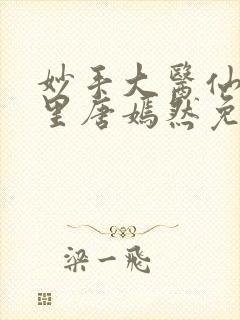 妙手大醫仙
里唐嫣然免
梁一飛